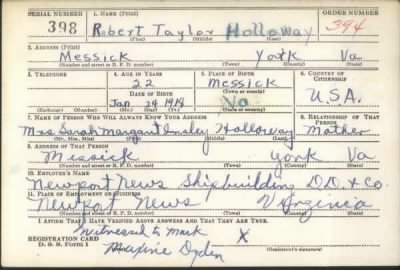 SERIAL NUMBER 1. NAME (Print) ORDER NUMBER
398 Robert Taylor Holloway 394
(First) (Middle) (Last)
2. ADDRESS (Print)
Messick York Va
(Number and street or R. F. D. number) (Town) (County) (State)
3. TELEPHONE 4. AGE IN YEARS 5. PLACE OF BIRTH 6. COUNTRY OF CITIZENSHIP
22 Messick
DATE OF BIRTH (Town or county)
Jan 24 1918 Va U.S.A.
(Exchange) (No.) (Mo.) (Day) (Yr.) (State or country)
7. NAME OF PERSON WHO WILL ALWAYS KNOW YOUR ADDRESS 8. RELATIONSHIP OF THAT PERSON
Mrs Sarah Margaret Holloway Mother
(Mr., Mrs., Miss) (First) (Middle) (Last)
9. ADDRESS OF THAT PERSON
Messick York Va
(Number and street or R. F. D. number) (Town) (County) (State)
10. EMPLOYER'S NAME
Newport News Shipbuilding D.D. & Co.
11. PLACE OF EMPLOYMENT OR BUSINESS
Newport News Virginia
(Number and street or R. F. D. number) (Town) (County) (State)
I AFFIRM THAT I HAVE VERIFIED ABOVE ANSWERS AND THAT THEY ARE TRUE.
Witnessed to mark X
REGISTRATION CARD
D. S. S. Form 1 Maxine